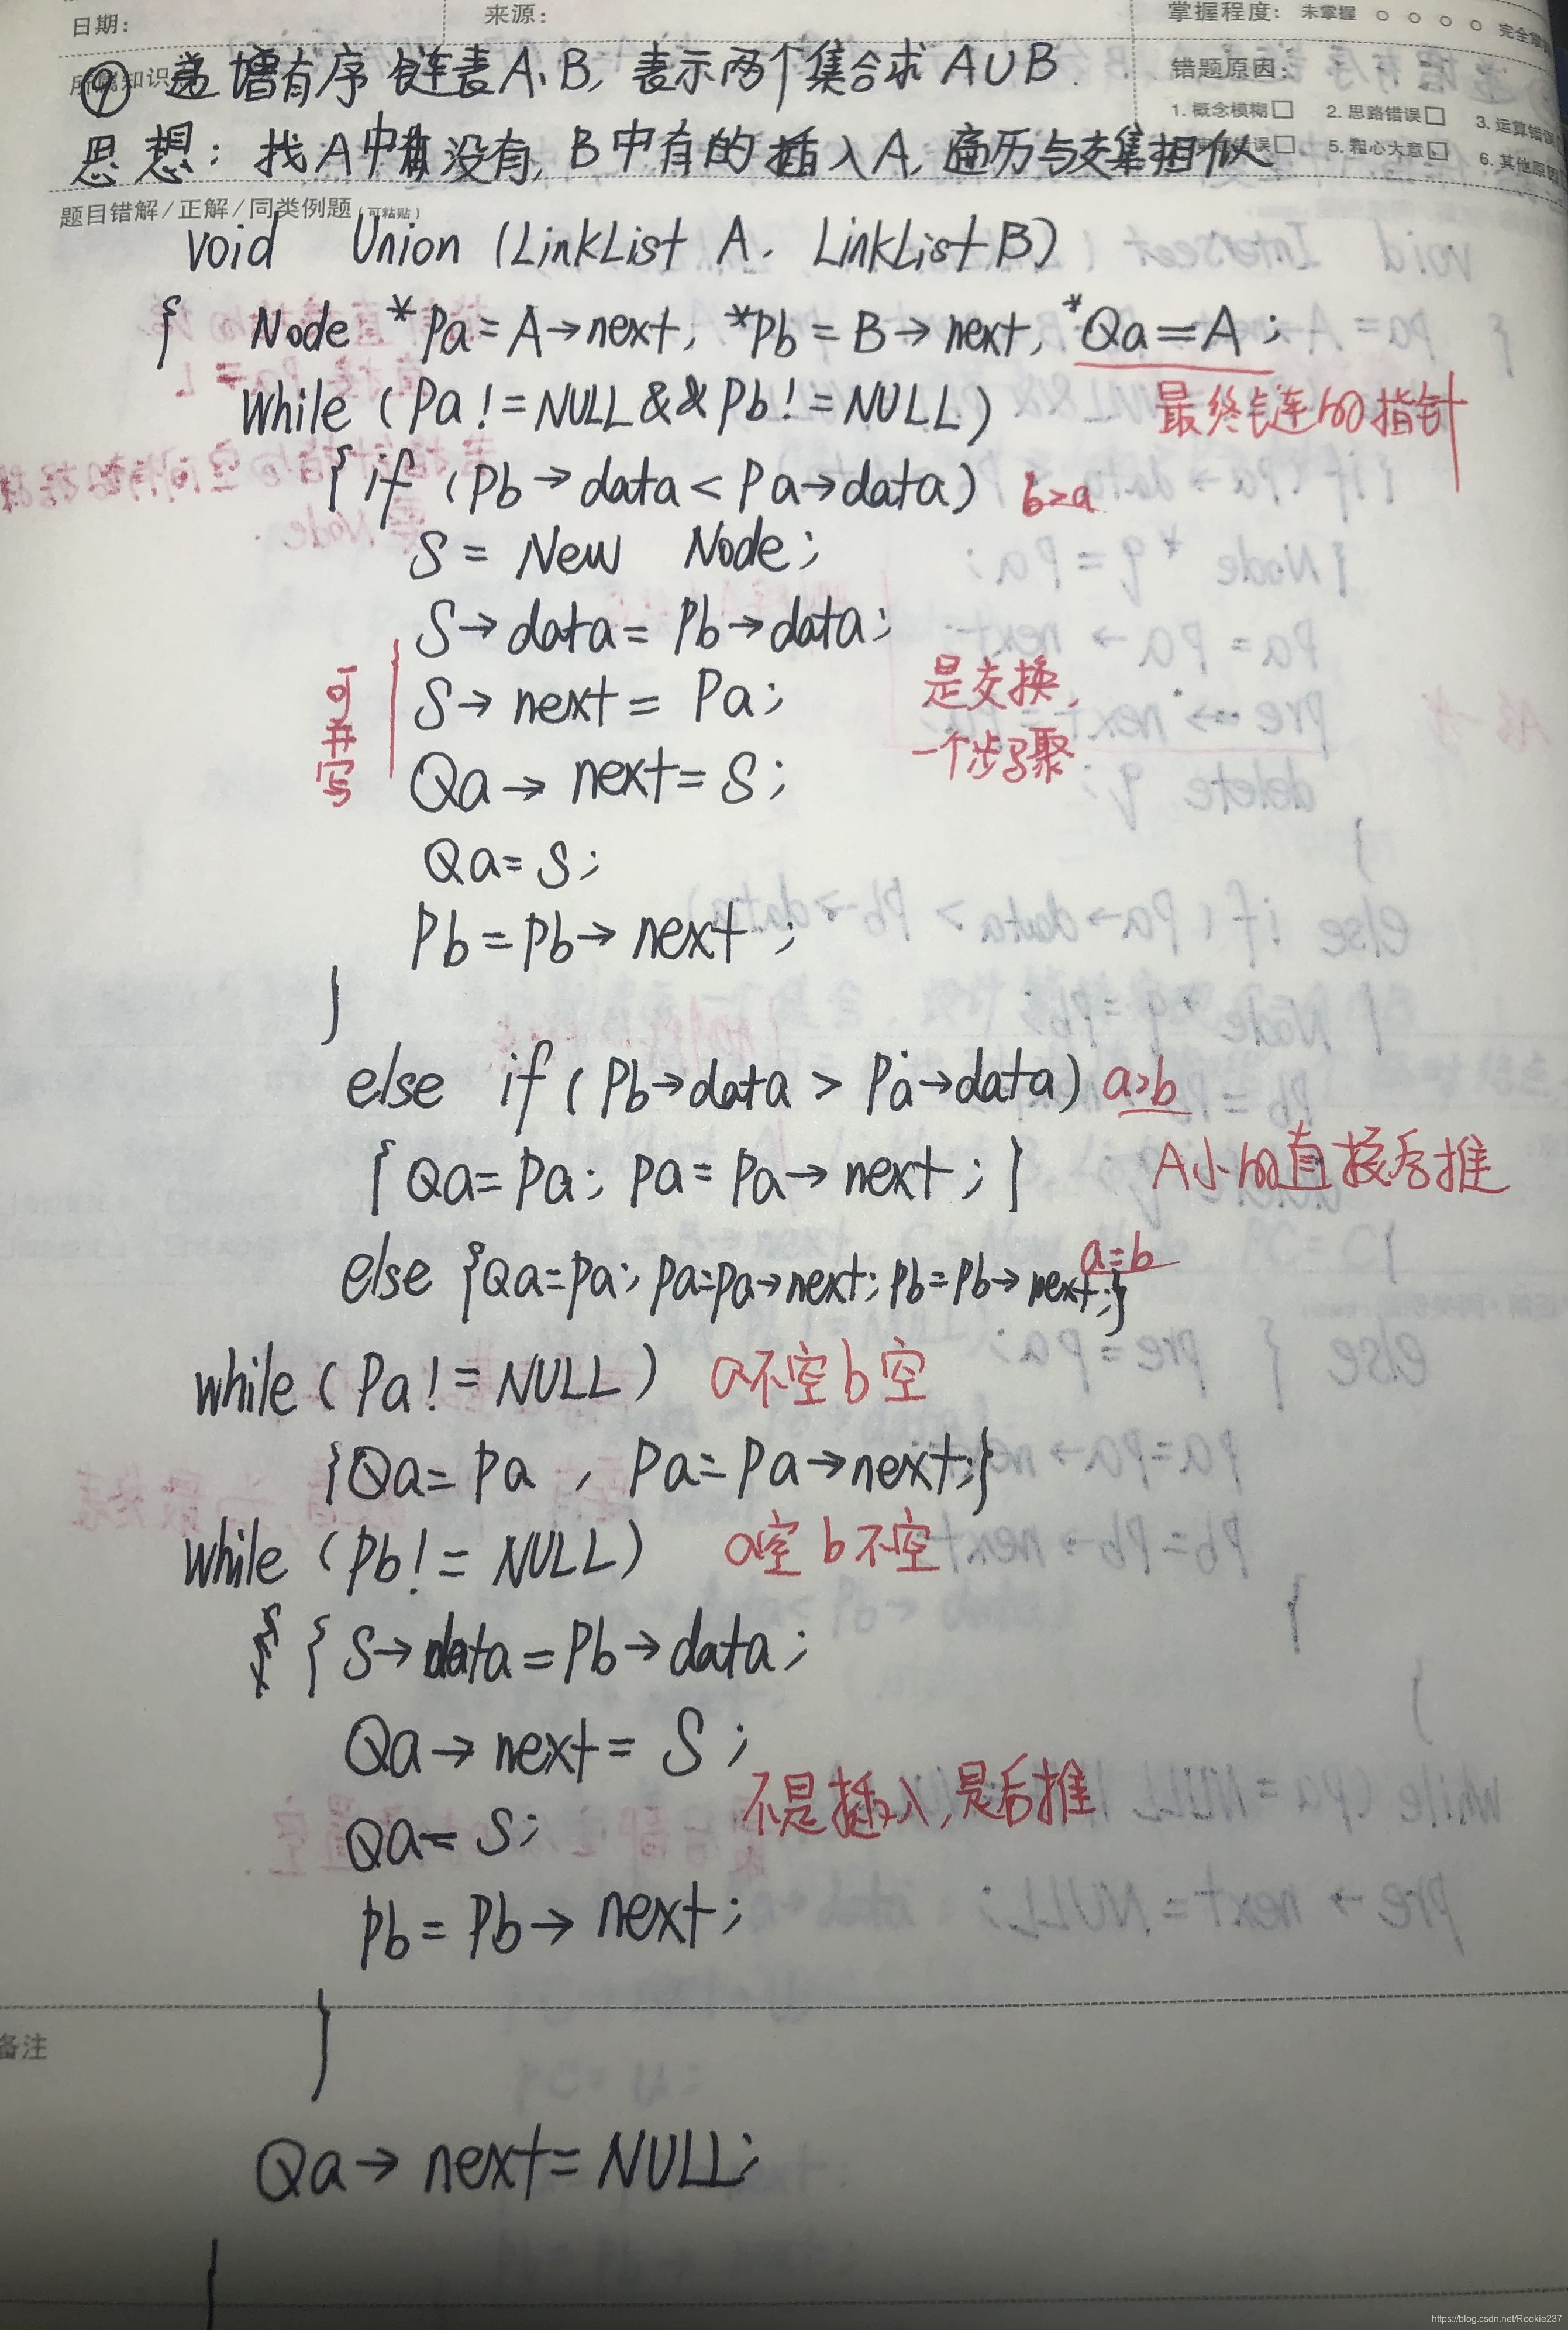 日期:
来源:
掌握程度: 未掌握 ○ ○ ○ ○ 完全掌
错题原因:
1. 概念模糊□ 2. 思路错误□ 3. 运算错误
误□ 5. 粗心大意□ 6. 其他原因
⑨ 递增有序链表A、B, 表示两个集合求 A∪B.
思想: 找A中没有, B中有的插入A, 遍历与交集相似
题目错解/正解/同类例题(可粘贴)
void Union (LinkList A, LinkList B)
{ Node *Pa=A→next, *Pb=B→next, *Qa=A;
最终链的指针
while (Pa!=NULL&&Pb!=NULL)
{ if (Pb→data<Pa→data) b>a
S = New Node;
S→data=Pb→data;
S→next=Pa;
可并写
是交换,
一个步骤
Qa→next=S;
Qa=S;
Pb=Pb→next;
}
else if(Pb→data > Pa→data) a>b
{Qa=Pa; Pa=Pa→next;} A小的直接后推
else {Qa=Pa; Pa=Pa→next; Pb=Pb→next;} a=b
while(Pa!=NULL) a不空b空
{Qa=Pa, Pa=Pa→next;}
while (Pb!=NULL) a空b不空
{ S→data=Pb→data;
Qa→next=S;
不是插入,是后推
Qa=S;
Pb=Pb→next;
}
备注
Qa→next=NULL;
}
https://blog.csdn.net/Rookie237